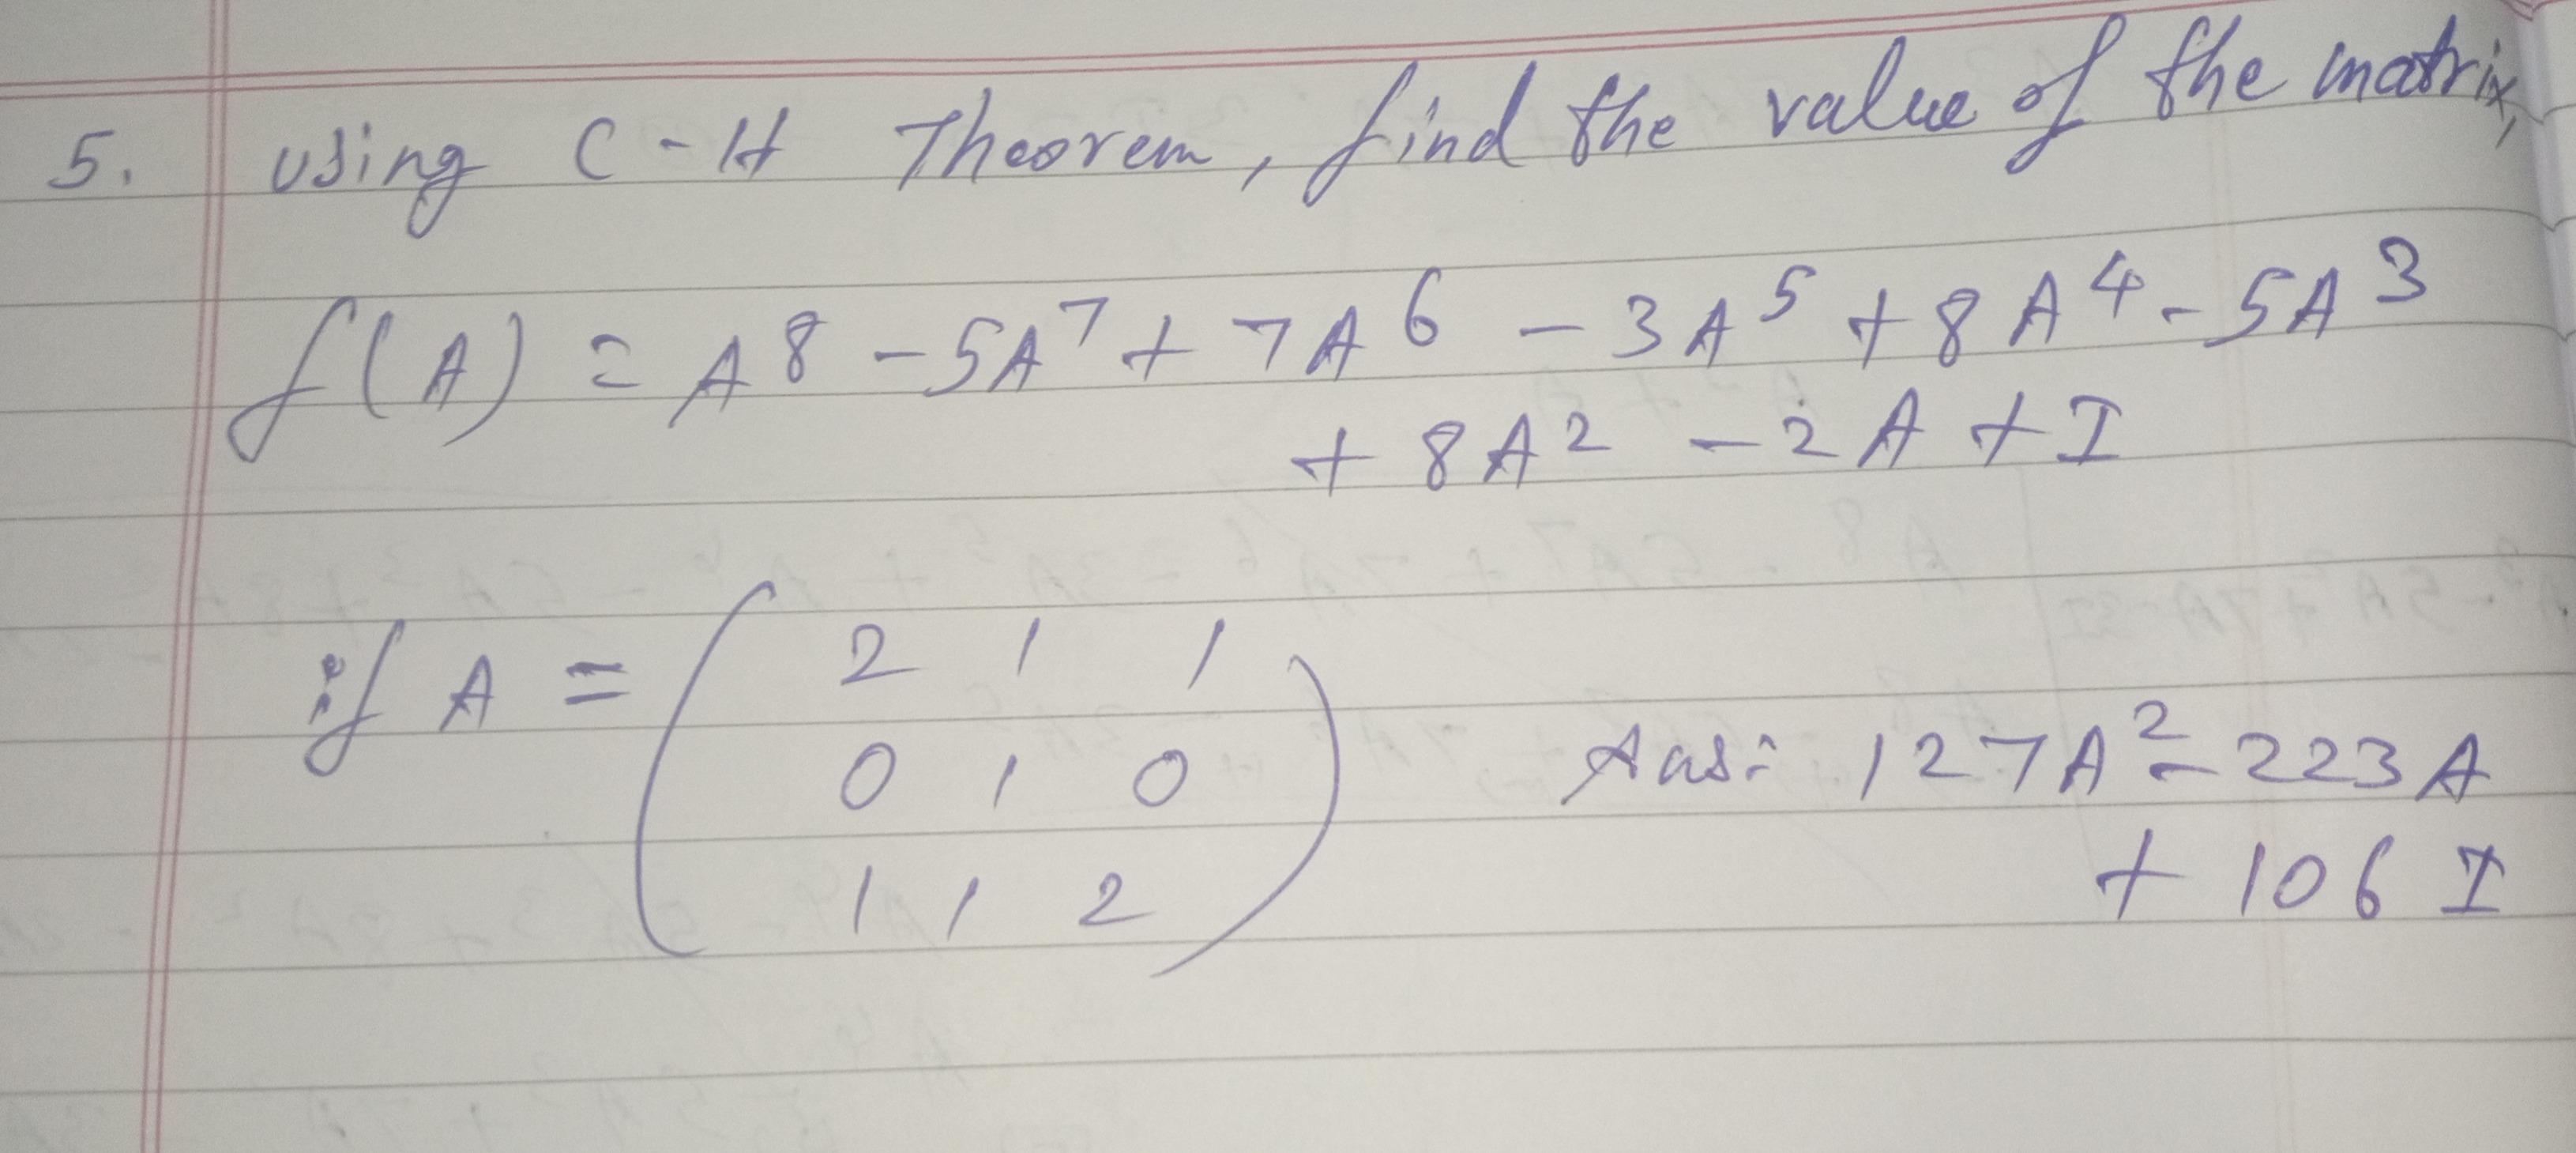 5. Using C-H Theorem, find the value of the matrix,
f(A) = A⁸ - 5A⁷ + 7A⁶ - 3A⁵ + 8A⁴ - 5A³
+ 8A² - 2A + I
if A = ( 2 1 1
0 1 0
1 1 2 )
Ans: 127A² - 223A
+ 106 I